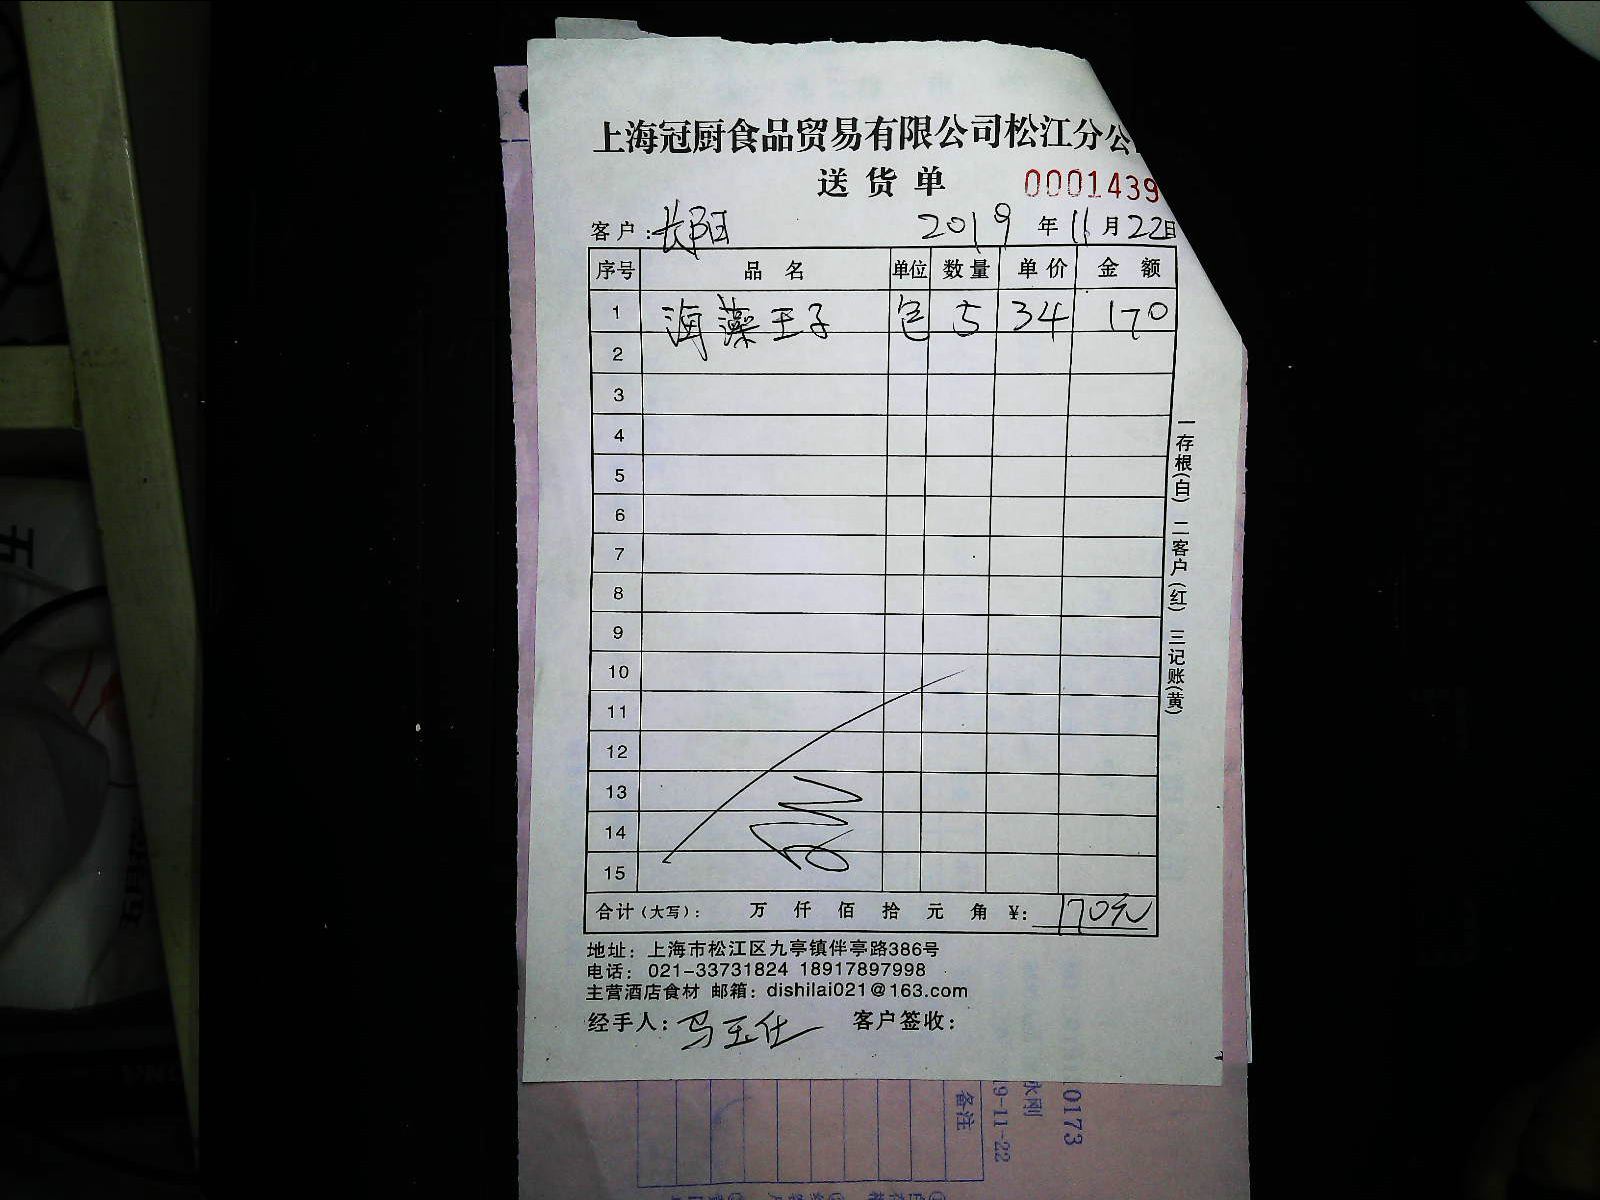 上海冠厨食品贸易有限公司松江分公
送货单 0001439
客户:长阳 2019年11月22日
序号 品名 单位 数量 单价 金额
1 海藻王子 包 5 34 170
2
3
4
5
6
7
8
9
10
11
12
13
14
15
合计(大写): 万 仟 佰 拾 元 角 ¥: 170元
地址:上海市松江区九亭镇伴亭路386号
电话:021-33731824 18917897998
主营酒店食材 邮箱:dishilai021@163.com
经手人:马玉仕 客户签收:
一存根(白) 二客户(红) 三记账(黄)
备注
19-11-22
永刚
0173
五